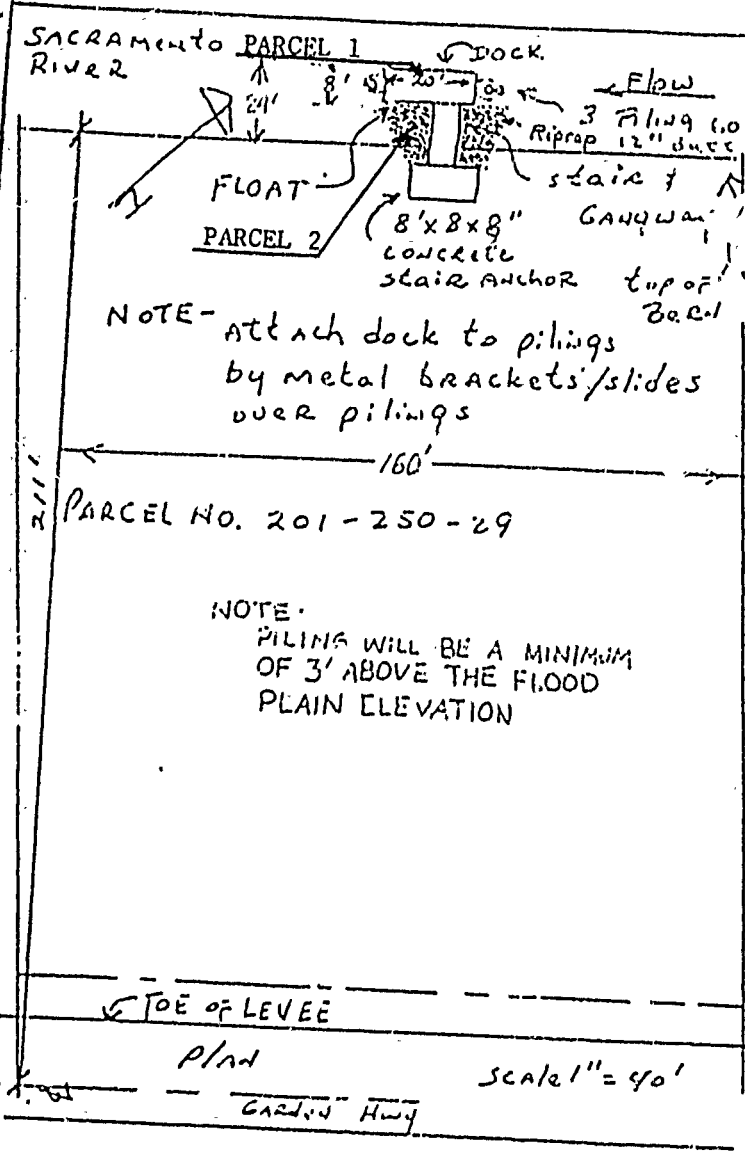 SACRAMENTO PARCEL 1
RIVER
DOCK
8' 20'
24'
Flow
3 Piling
Riprap 12"
FLOAT
stair &
GANGWAY
PARCEL 2
8'x8x8"
CONCRETE
STAIR ANCHOR
top of
NOTE- Attach dock to pilings
by metal brackets/slides
over pilings
160'
211'
PARCEL NO. 201-250-29
NOTE.
PILING WILL BE A MINIMUM
OF 3' ABOVE THE FLOOD
PLAIN ELEVATION
TOE OF LEVEE
Plan
SCALE 1" = 40'
GARDEN HWY